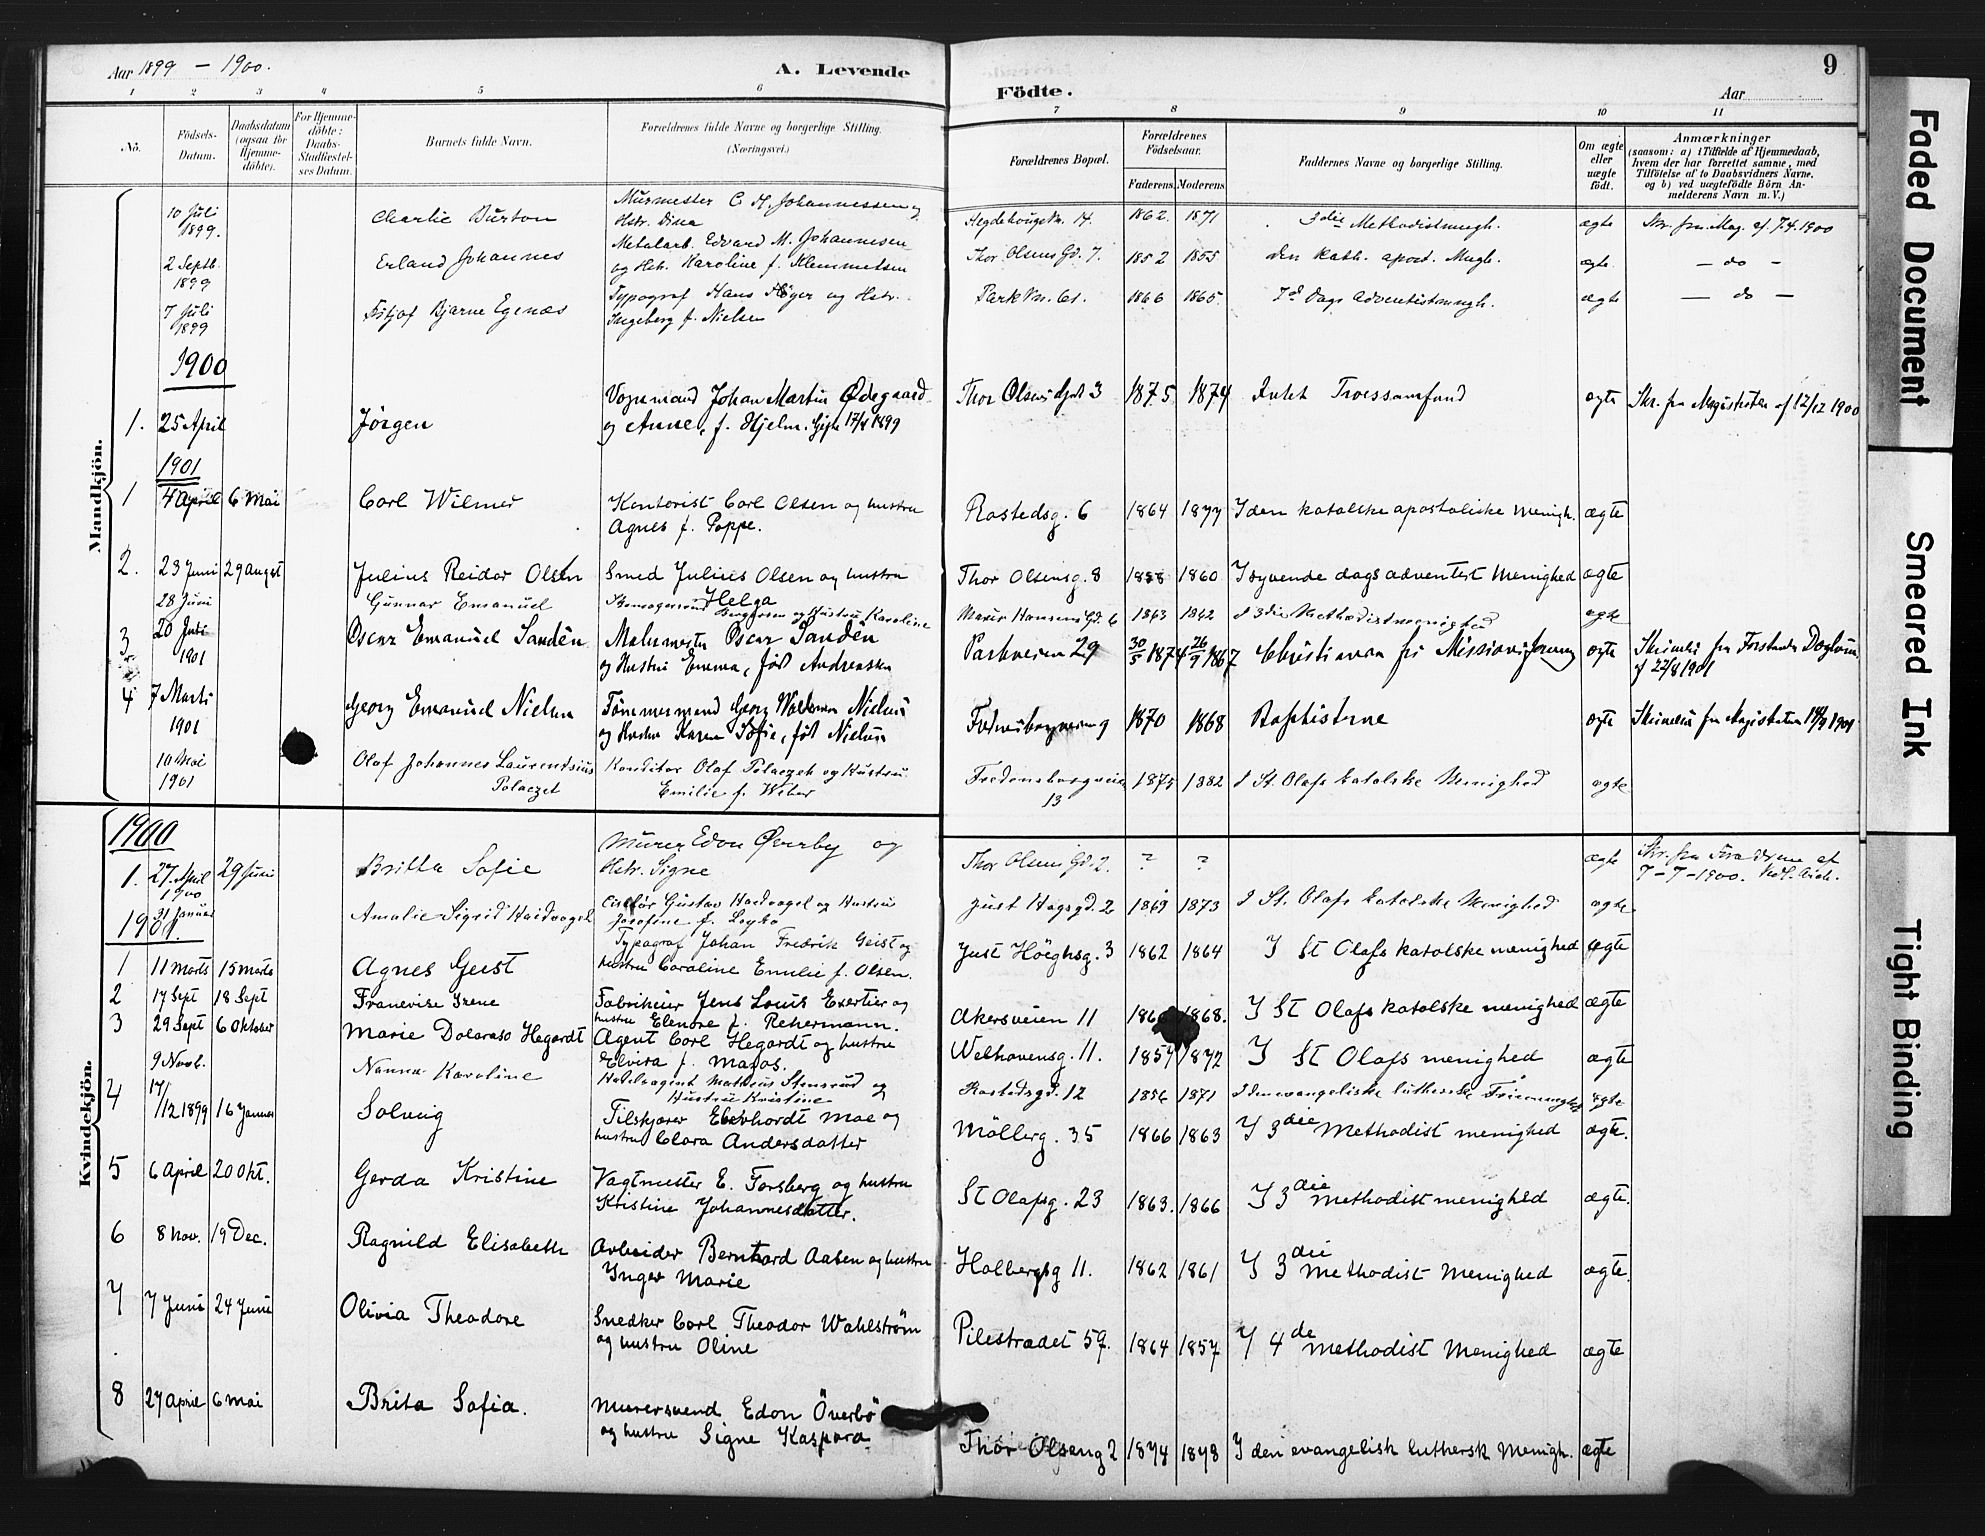 Aar 1899 – 1900.
A. Levende
Födte.
Aar
9
1 2 3 4 5 6 7 8 9 10 11
No.
Födsels-Datum.
Daabsdatum (ogsaa for Hjemme-döbte).
For Hjemme-döbte: Daabs-Stadfæstel-ses Datum.
Barnets fulde Navn.
Forældrenes fulde Navne og borgerlige Stilling. (Næringsvei.)
Forældrenes Bopæl.
Forældrenes Födselsaar.
Faderens Moderens
Faddernes Navne og borgerlige Stilling.
Om ægte eller uægte födt.
Anmærkninger
(saasom: a) i Tilfælde af Hjemmedaab,
hvem der har forrettet samme, med
Tilföielse af to Daabsvidners Navne.
og b) ved uægtefödte Börn An-
melderens Navn m. V.)
Mandkjön.
10 Juli 1899. Charlie Burton Murmester C. H. Johannessen og Hstr. Dina Hegdehaugsvn. 14. 1862. 1871 3die Methodistmngh. ægte Skr. fra Mag. af 7.4.1900
2 Septb. 1899 Erland Johannes Metalarb. Edvard M. Johannesen og Hstr. Karoline f. Klemmetsen Thor Olsens Gd. 7. 1852 1855 den kath. apost. Mngh. ægte – do –
7 Juli 1899 Fritjof Bjarne Egenæs Typograf Hans Höyer og Hstr. Ingeborg f. Nielsen Parkvn. 61. 1866 1865. 7d Dags Adventistmngh. ægte – do –
1900
1. 25 April Jörgen Vognmand Johan Martin Ødegaard og Anne, f. Hjelm. Gift 17/4 1899 Thor Olsens Gd. 3 1875 1874 Intet Troessamfund ægte Skr. fra Magistraten af 12/12 1900
1901
1 4 April 6 Mai Carl Wilmer Kontorist Carl Olsen og hustru Agnes f. Poppe. Rostedsg. 6 1864 1877 I den katolske apostoliske Menigh. ægte
2. 23 Juni 29 August Julius Reidar Olsen Smed Julius Olsen og hustru Helga Thor Olsensg. 8 1858 1860 I syvende dags adventist Menighed ægte
28 Juni Gunnar Emanuel og Hustru Karoline Maria Hansens Gd. 6 1863 1862 I 3die Methodistmenighed ægte
3 20 Juli 1901 Oscar Emanuel Sandén Malermester Oscar Sandén og Hustru Emma, född Andreassen Parkveien 29 30/5 1874 26/9 1867 Christiania fri Missionsforening ægte af 22/8 1901
4 7 Marts 1901 Georg Emanuel Nielsen Tömmermand Georg Waldemar Nielsen og Hustru Karen Sofie, född Nielsen Fredensborgveien 9 1870 1868 Baptisterne ægte
10 Mai 1901 Olaf Johannes Laurentsius Polaczek Konditor Olaf Polaczek og Hustru Emilie f. Weber Fredensborgveien 13 1875 1882 I St. Olafs katolske Menighed ægte
Kvindekjön.
1900
1. 27. April 1900 29 Juni Britta Sofie Murer Edon Øverby og Hstr. Signe Thor Olsens Gd. 2. ? ? ægte Skr. fra Forældrene af 7-7-1900.
1901.
31 Januar Amalie Sigrid Haidvogel Ciselör Gustav Haidvogel og Hustru Josefine f. Leyko Just Högsgd. 2 1869 1873 I St. Olafs katolske Menighed ægte
1 11 Marts 15 Marts Agnes Geist Typograf Johan Fredrik Geist og hustru Caroline Emilie f. Olsen. Just Höeghsg. 3 1862 1864 I St Olafs katolske menighed ægte
2 17 Sept 18 Sept Francoise Irene Fabrikeier Jens Louis Exertier og hustru Elenore f. Rehermann. Akersveien 11 1868. I St Olafs katolske menighed ægte
3 29 Sept 6 Oktober Marie Doloroso Hegardt Agent Carl Hegardt og hustru Elvira f. Mazos. Welhavensg. 11. 1857 1872 I St Olafs menighed ægte
9 Novb. Nanna Karoline Handelsagent Mathias Stensrud og Hustru Kristine Rostedsgd. 12 1856 1871 I den evangeliske lutherske Frimenighed ægte
4 17/12 1899 16 Januar Solveig Filskjærer Eberhardt Moe og hustru Clara Andersdatter Möllerg. 35 1866 1863 I 3die Methodist menighed ægte.
5 6 April 20 Okt. Gerda Kristine Vagtmester E. Forsberg og hustru Kristine Johannesdatter. St Olafsg. 23 1863. 1866 I 3die Methodistmenighed ægte.
6 8 Nov. 19 Dec. Ragnild Elisabeth Arbeider Bernhard Aasen og hustru Inger Marie Holbergsg 11. 1862 1861 I 3die Methodist Menighed ægte.
7 7 Juni 24 Juni Olivia Theodore Snedker Carl Theodor Wahlström og hustru Oline Pilestrædet 59. 1864 1857 I 4de Methodist Menighed ægte
8 27 April 6 Mai Brita Sofia. Murersvend Edon Överbö og hustru Signe Kaspara Thor Olseng 2 1874 1873 I den evangelisk luthersk Menigh. ægte
Faded Document
Smeared Ink
Tight Binding